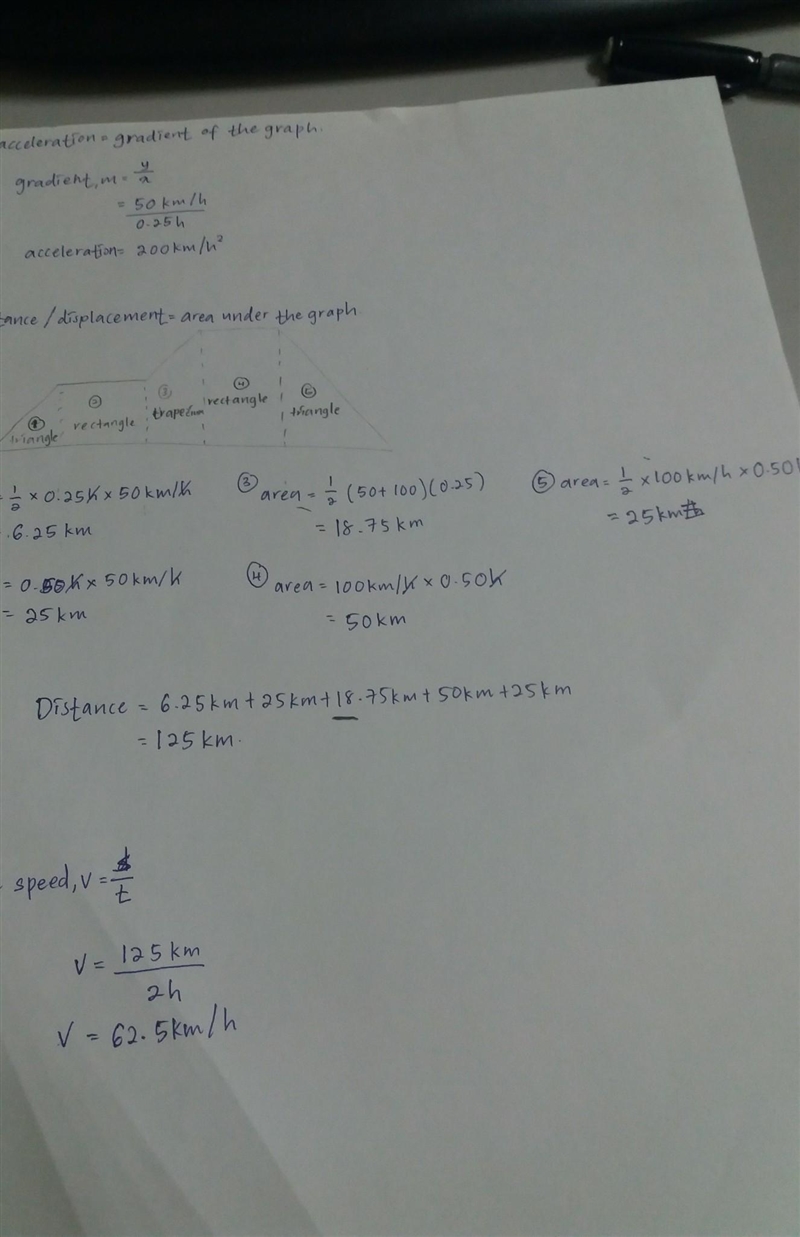 acceleration = gradient of the graph.
gradient, m = y/x
= 50 km/h / 0.25h
acceleration = 200 km/h²
tance / displacement = area under the graph
① triangle
② rectangle
③ trapezium
④ rectangle
⑤ triangle
= 1/2 × 0.25h × 50 km/h
= 6.25 km
= 0.50h × 50 km/h
= 25 km
③ area = 1/2 (50+100)(0.25)
= 18.75 km
④ area = 100 km/h × 0.50h
= 50 km
⑤ area = 1/2 × 100 km/h × 0.50h
= 25 km
Distance = 6.25 km + 25 km + 18.75 km + 50 km + 25 km
= 125 km.
speed, v = d/t
v = 125 km / 2h
v = 62.5 km/h